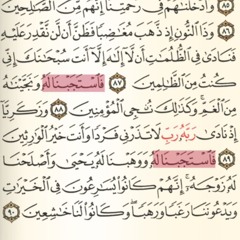 ٨٥ وَأَدْخَلْنَٰهُمْ فِى رَحْمَتِنَآ إِنَّهُم مِّنَ ٱلصَّٰلِحِينَ
٨٦ وَذَا ٱلنُّونِ إِذ ذَّهَبَ مُغَٰضِبًا فَظَنَّ أَن لَّن نَّقْدِرَ عَلَيْهِ
فَنَادَىٰ فِى ٱلظُّلُمَٰتِ أَن لَّآ إِلَٰهَ إِلَّآ أَنتَ سُبْحَٰنَكَ إِنِّى
كُنتُ مِنَ ٱلظَّٰلِمِينَ ٨٧ فَٱسْتَجَبْنَا لَهُۥ وَنَجَّيْنَٰهُ
مِنَ ٱلْغَمِّ وَكَذَٰلِكَ نُۨجِى ٱلْمُؤْمِنِينَ ٨٨ وَزَكَرِيَّآ
إِذْ نَادَىٰ رَبَّهُۥ رَبِّ لَا تَذَرْنِى فَرْدًا وَأَنتَ خَيْرُ ٱلْوَٰرِثِينَ
٨٩ فَٱسْتَجَبْنَا لَهُۥ وَوَهَبْنَا لَهُۥ يَحْيَىٰ وَأَصْلَحْنَا
لَهُۥ زَوْجَهُۥٓ إِنَّهُمْ كَانُوا۟ يُسَٰرِعُونَ فِى ٱلْخَيْرَٰتِ
وَيَدْعُونَنَا رَغَبًا وَرَهَبًا وَكَانُوا۟ لَنَا خَٰشِعِينَ ٩٠